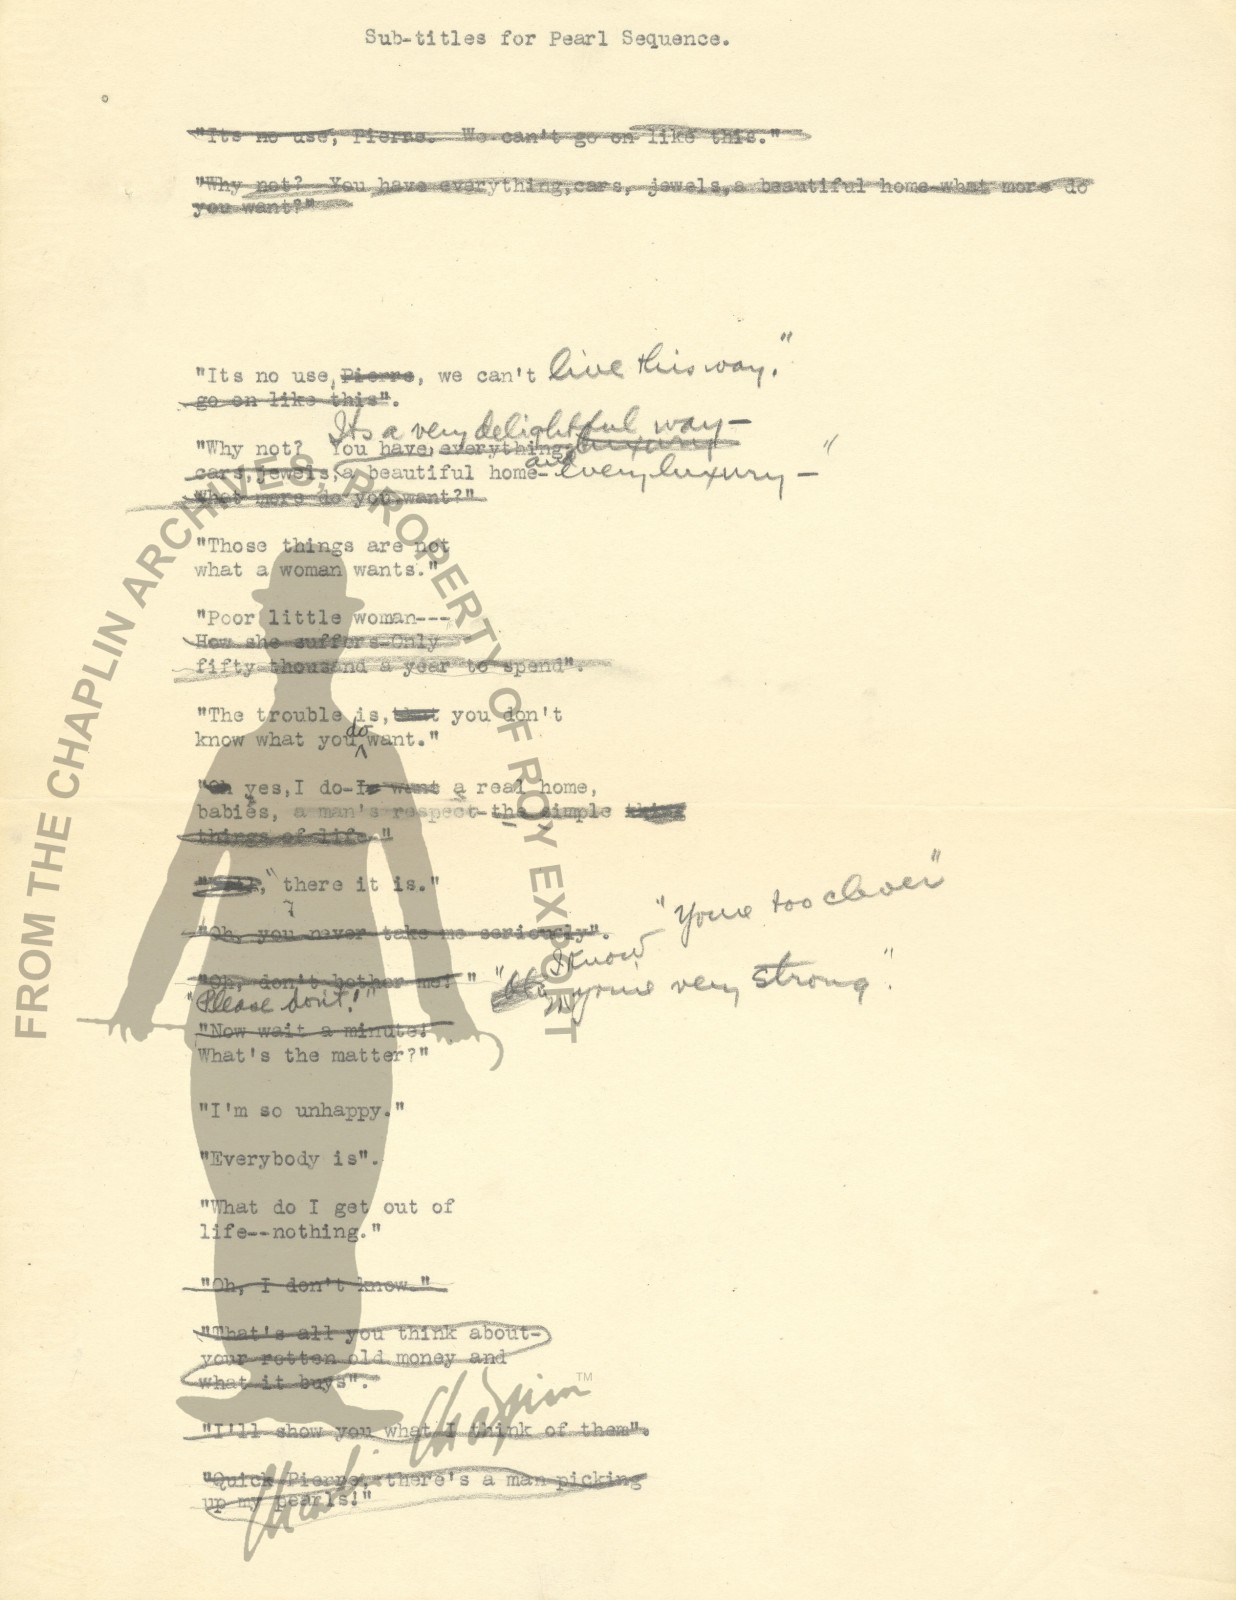 Sub-titles for Pearl Sequence.
"Its no use, Pierre. We can't go on like this."
"Why not? You have everything,cars, jewels,a beautiful home-what more do
you want?"
"Its no use,Pierre, we can't live this way."
go on like this".
Its a very delightful way—
"Why not? You have everything, luxury
cars,jewels,a beautiful home- and every luxury —"
What more do you want?"
"Those things are not
what a woman wants."
"Poor little woman---
How she suffers-Only
fifty thousand a year to spend".
"The trouble is,that you don't
know what you do want."
"Oh yes,I do-I want a real home,
babies, a man's respect-the simple
things of life."
," there it is."
"You're too clever"
"Oh, you never take me seriously".
I know
"Oh, don't bother me!" " you're very strong".
"Please don't!"
"Now wait a minute!
What's the matter?"
"I'm so unhappy."
"Everybody is".
"What do I get out of
life--nothing."
"Oh, I don't know."
"That's all you think about-
your rotten old money and
what it buys".
"I'll show you what I think of them".
"Quick Pierre, there's a man picking
up my pearls!"
FROM THE CHAPLIN ARCHIVES, PROPERTY OF ROY EXPORT
Charlie Chaplin TM